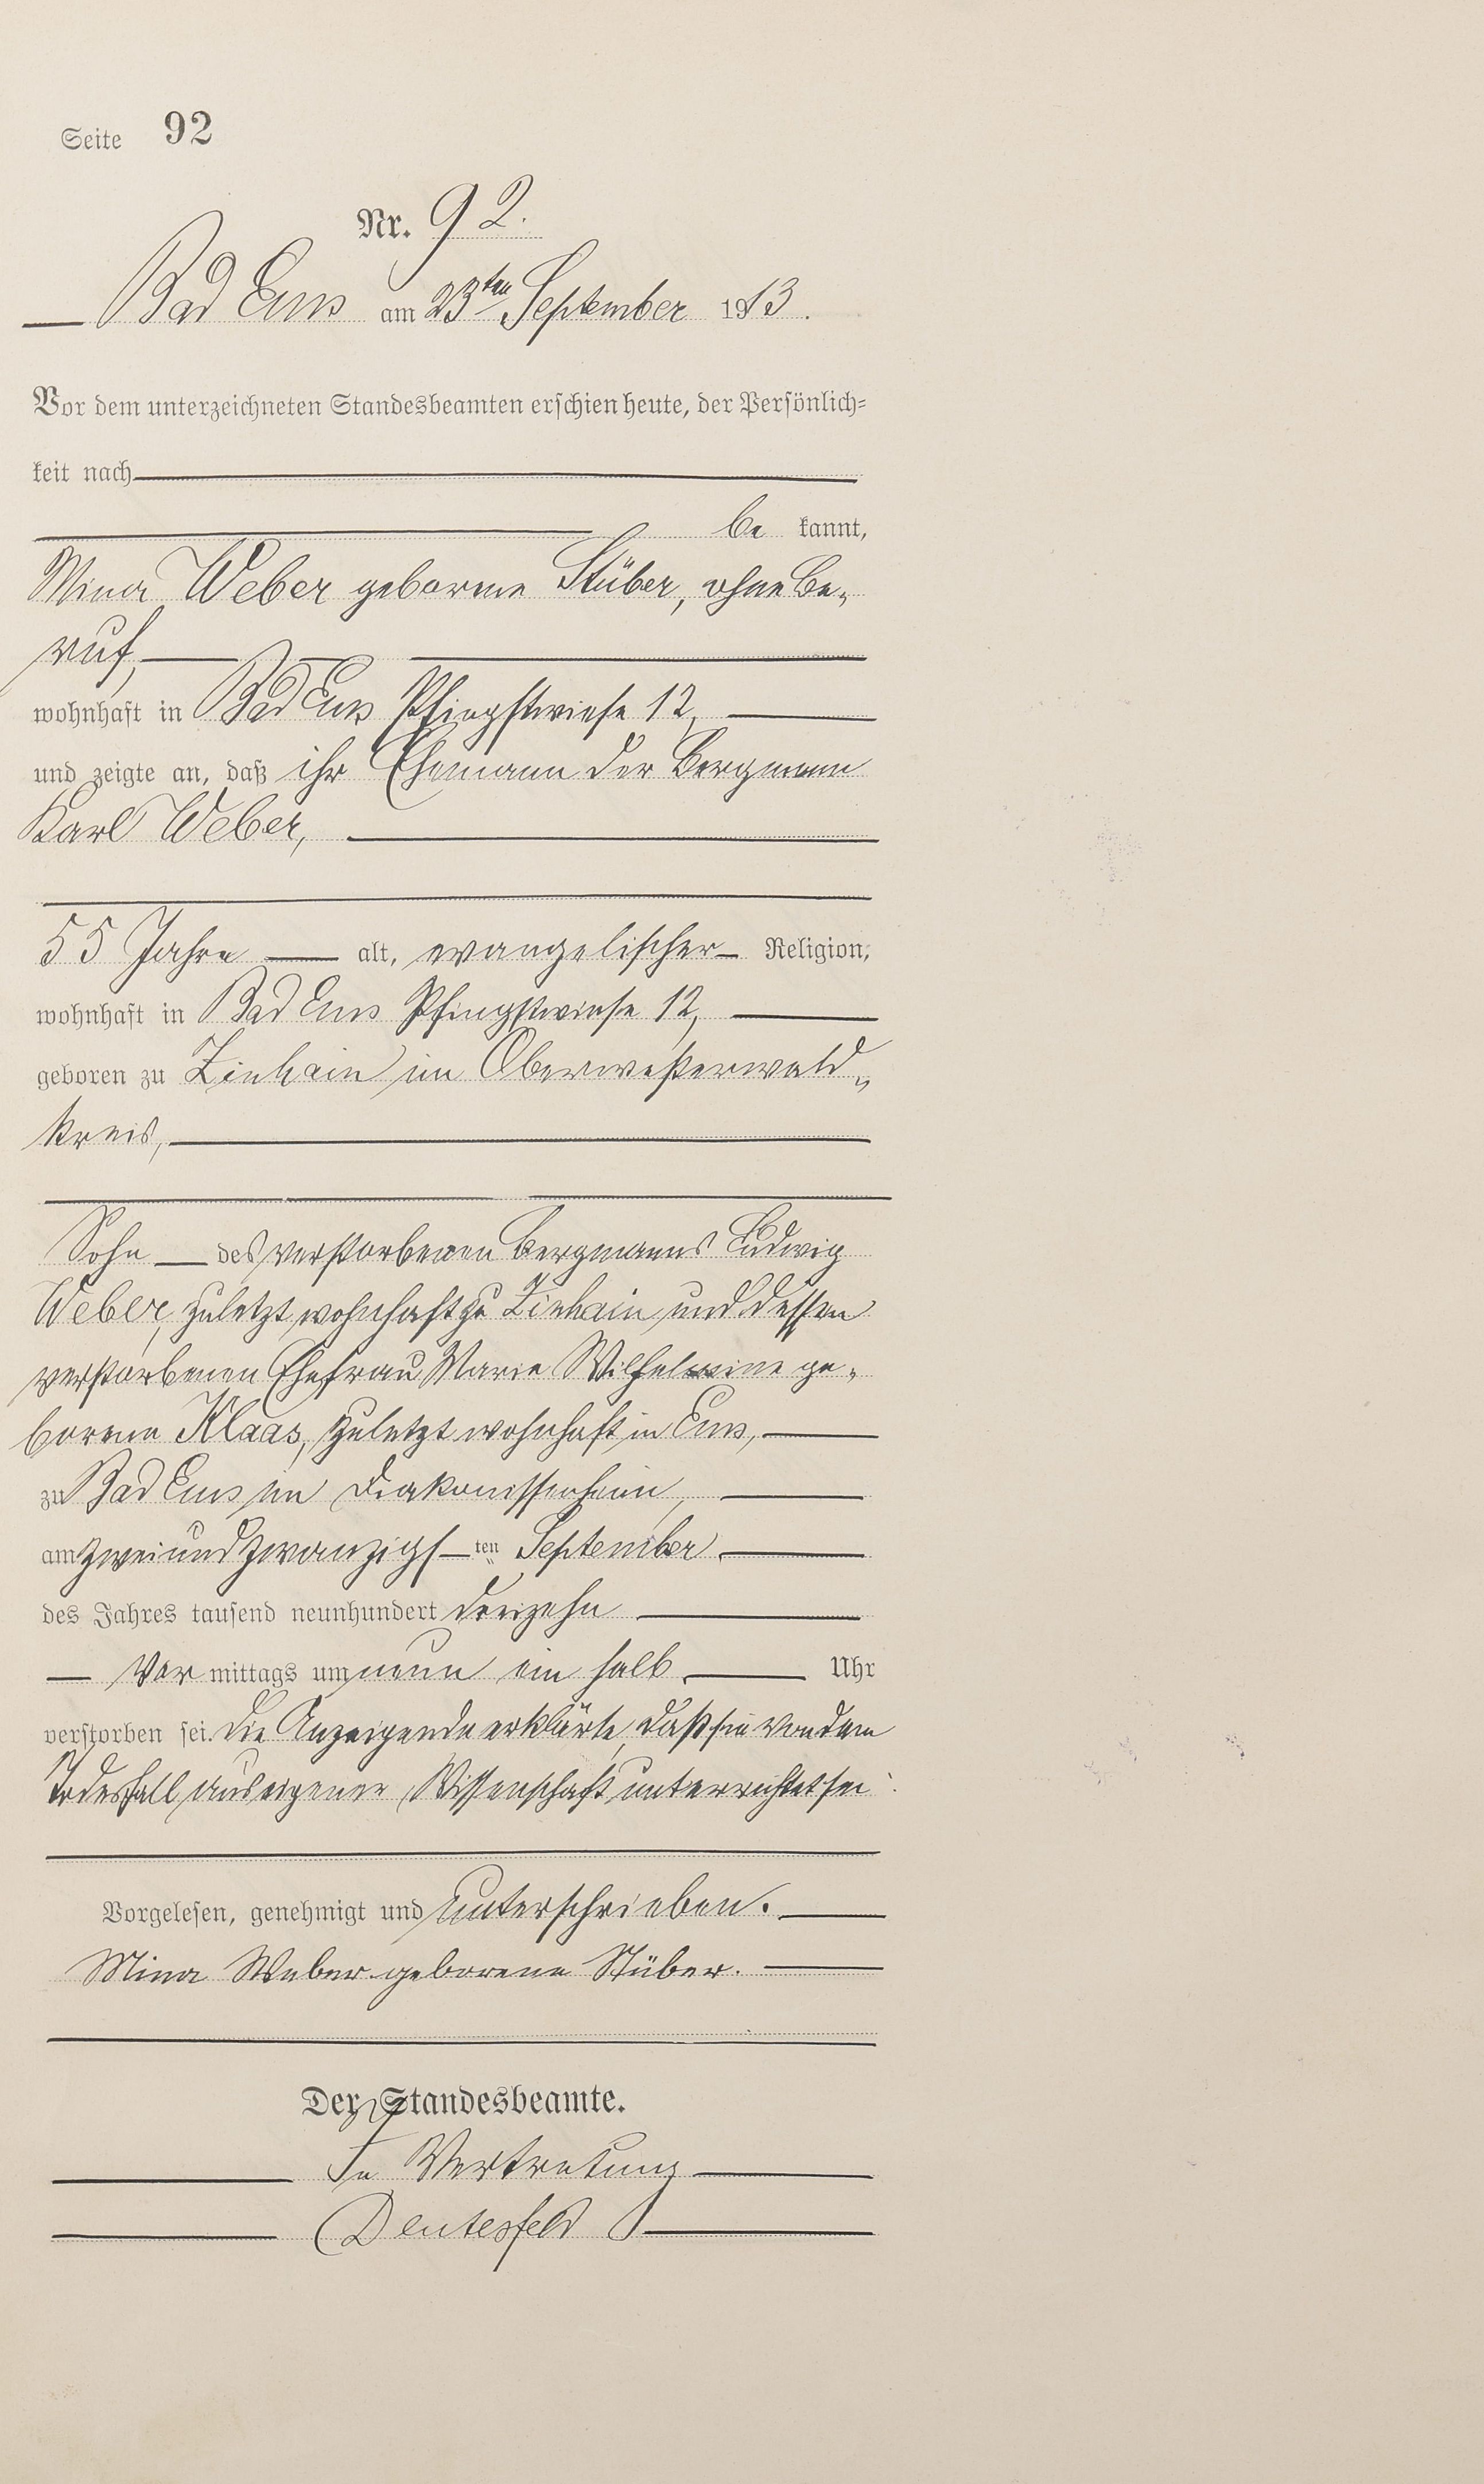 Seite 92
Nr. 92.
Bad Ems am 23ten September 1913.
Vor dem unterzeichneten Standesbeamten erschien heute, der Persönlich=
keit nach
be kannt,
Mina Weber geborene Stüber, ohne Be-
ruf,
wohnhaft in Bad Ems Pfingstwiese 12,
und zeigte an, daß ihr Ehemann der Bergmann
Karl Weber,
55 Jahre alt, evangelischer Religion,
wohnhaft in Bad Ems Pfingstwiese 12,
geboren zu Zinhain im Oberwesterwald-
kreis,
Sohn des verstorbenen Bergmanns Ludwig
Weber, zuletzt wohnhaft zu Zinhain und dessen
verstorbenen Ehefrau Marie Wilhelmine ge-
borene Klaas, zuletzt wohnhaft in Ems,
zu Bad Ems im Diakonissenheim,
am zweiundzwanzigs ten September
des Jahres tausend neunhundert dreizehn
Vor mittags um neun ein halb Uhr
verstorben sei. Die Anzeigende erklärte, daß sie von dem
Todesfall aus eigener Wissenschaft unterrichtet sei.
Vorgelesen, genehmigt und unterschrieben.
Mina Weber geborene Stüber.
Der Standesbeamte.
In Vertretung